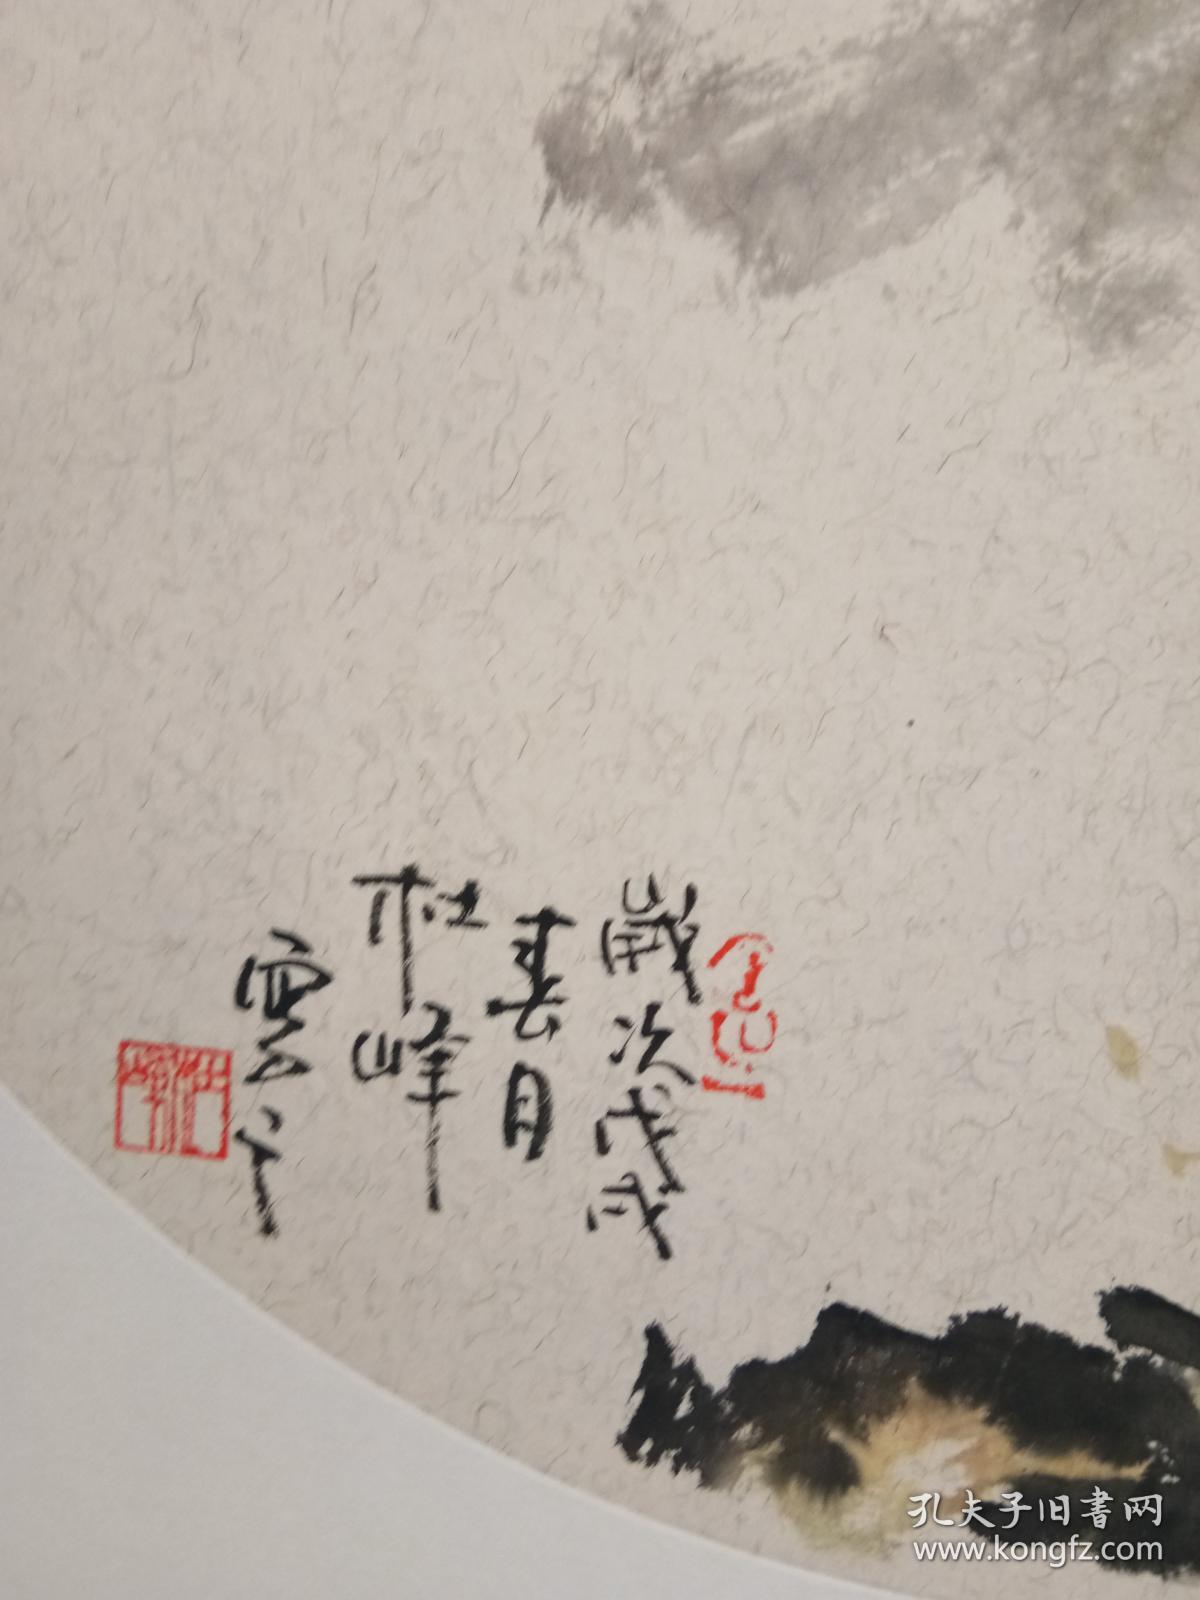 歲次戊戌
春日
杜峰
寫
孔夫子旧書网
www.kongfz.com